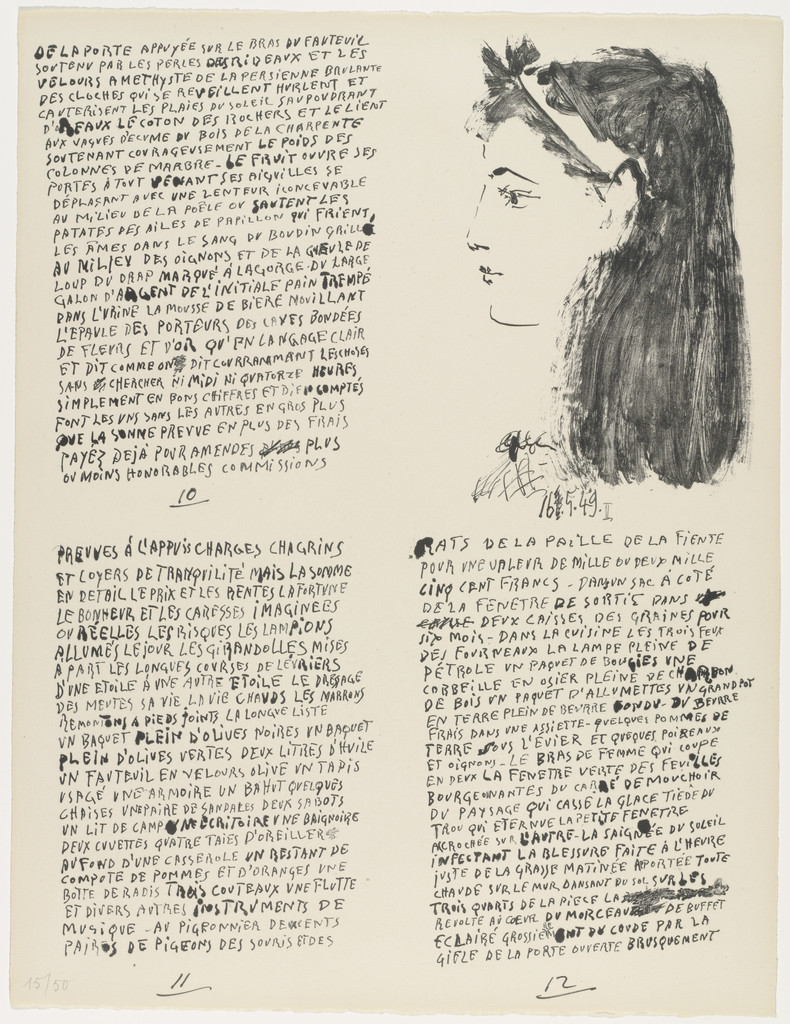 DE LA PORTE APPUYÉE SUR LE BRAS DU FAUTEUIL
SOUTENU PAR LES PERLES DES RIDEAUX ET LES
VELOURS AMETHYSTE DE LA PERSIENNE BRULANTE
DES CLOCHES QUI SE REVEILLENT HURLENT ET
CAUTERISENT LES PLAIES DU SOLEIL SAUPOUDRANT
LE COTON DES ROCHERS ET LE LIENT
AUX VAGUES D'ECUME DU BOIS DE LA CHARPENTE
SOUTENANT COURAGEUSEMENT LE POIDS DES
COLONNES DE MARBRE - LE FRUIT OUVRE SES
PORTES À TOUT VENANT SES AIGUILLES SE
DEPLASANT AVEC UNE LENTEUR ICONCEVABLE
AU MILIEU DE LA POÊLE OU SAUTENT LES
PATATES DES AILES DE PAPILLON QUI FRIENT
LES ÂMES DANS LE SANG DU BOUDIN GRILLÉ
AU MILIEU DES OIGNONS ET DE LA GUEULE DE
LOUP DU DRAP MARQUÉ À LA GORGE DU LARGE
GALON D'ARGENT DE L'INITIALE PAIN TREMPÉ
DANS L'URINE LA MOUSSE DE BIERE MOUILLANT
L'EPAULE DES PORTEURS DES CAVES BONDÉES
DE FLEURS ET D'OR QU'EN LANGAGE CLAIR
ET DIT COMME ON DIT COURRAMMANT LES CHOSES
SANS CHERCHER NI MIDI NI QUATORZE HEURES
SIMPLEMENT EN BONS CHIFFRES ET COMPTÉS
FONT LES UNS SANS LES AUTRES EN GROS PLUS
QUE LA SOMME PREVUE EN PLUS DES FRAIS
PAYÉZ DEJÀ POUR AMENDES PLUS
OU MOINS HONORABLES COMMISSIONS
10
16.5.49.II
PREUVES À L'APPUIS CHARGES CHAGRINS
ET LOYERS DE TRANQUILITÉ MAIS LA SOMME
EN DETAIL LE PRIX ET LES RENTES LA FORTUNE
LE BONHEUR ET LES CARESSES IMAGINEES
OU RÉELLES LES RISQUES LES LAMPIONS
ALLUMÉS LE JOUR LES GIRANDOLLES MISES
A PART LES LONGUES COURSES DE LÉVRIERS
D'UNE ETOILE À UNE AUTRE ETOILE LE DRESAGE
DES MEUTES SA VIE LA VIE CHAUDS LES MARRONS
REMONTONS À PIEDS JOINTS LA LONGUE LISTE
UN BAQUET PLEIN D'OLIVES NOIRES UN BAQUET
PLEIN D'OLIVES VERTES DEUX LITRES D'HUILE
UN FAUTEUIL EN VELOURS OLIVE UN TAPIS
USAGÉ UNE ARMOIRE UN BAHUT QUELQUES
CHAISES UNE PAIRE DE SANDALES DEUX SABOTS
UN LIT DE CAMP UNE ÉCRITOIRE UNE BAIGNOIRE
DEUX CUVETTES QUATRE TAIES D'OREILLER
AU FOND D'UNE CASSEROLE UN RESTANT DE
COMPOTE DE POMMES ET D'ORANGES UNE
BOTTE DE RADIS TROIS COUTEAUX UNE FLUTTE
ET DIVERS AUTRES INSTRUMENTS DE
MUSIQUE - AU PIGEONNIER DEUX CENTS
PAIRES DE PIGEONS DES SOURIS ET DES
11
RATS DE LA PAILLE DE LA FIENTE
POUR UNE VALEUR DE MILLE OU DEUX MILLE
CINQ CENT FRANCS - DANS UN SAC À COTÉ
DE LA FENETRE DE SORTIE DANS
DEUX CAISSES DES GRAINES POUR
SIX MOIS - DANS LA CUISINE LES TROIS FEUX
DES FOURNEAUX LA LAMPE PLEINE DE
PÉTROLE UN PAQUET DE BOUGIES UNE
CORBEILLE EN OSIER PLEINE DE CHARBON
DE BOIS UN PAQUET D'ALLUMETTES UN GRAND POT
EN TERRE PLEIN DE BEURRE FONDU - DU BEURRE
FRAIS DANS UNE ASSIETTE - QUELQUES POMMES DE
TERRE SOUS L'EVIER ET QUEQUES POIREAUX
ET OIGNONS - LE BRAS DE FEMME QUI COUPE
EN DEUX LA FENETRE VERTE DES FEUILLES
BOURGEONANTES DU CARRÉ DE MOUCHOIR
DU PAYSAGE QUI CASSE LA GLACE TIÈDE DU
TROU QUI ETERNUE LA PETITE FENETRE
ACCROCHÉE SUR L'AUTRE - LA SAIGNÉE DU SOLEIL
INFECTANT LA BLESSURE FAITE À L'HEURE
JUSTE DE LA GRASSE MATINÉE APORTÉE TOUTE
CHAUDE SUR LE MUR DANSANT DU SOL SUR LES
TROIS QUARTS DE LA PIECE LA
REVOLTE AU COEUR DU MORCEAU DE BUFFET
ÉCLAIRÉ GROSSIEREMENT DU COUDE PAR LA
GIFLE DE LA PORTE OUVERTE BRUSQUEMENT
12
15/50